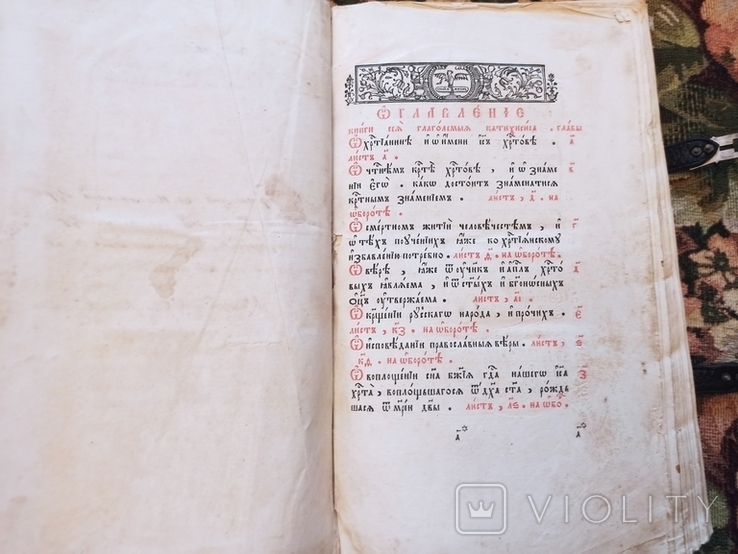 Ѡ҆ГЛАВЛЕ́НЇЕ
книги сеѧ̀ глаголемыѧ катихисиса . главы
Ѡ҆ хрⷭ҇тїанинѣ и҆ ѡ҆ и҆мени і҆с҃ъ хрⷭ҇товѣ . а҃
листъ а҃ .
Ѡ҆ чтⷭ҇нѣмъ крⷭ҇тѣ хрⷭ҇товѣ , и҆ ѡ҆ знаме в҃
нїи є҆гѡ̀ . какѡ достоитъ знаменатисѧ
крⷭ҇тнымъ знаменїемъ . листъ , д҃ . на
ѡ҆боротѣ .
Ѡ҆ смертномъ житїи человѣчестемъ , и҆ г҃
ѡ҆ тѣхъ поученїихъ ꙗ҆же ко хрⷭ҇тїѧнскому
и҆збавленїю потребно . листъ ѳ҃ . на ѡ҆боротѣ .
Ѡ҆ вѣрѣ , ꙗ҆же ѿ оу҆чн҃къ и҆ а҆пⷭ҇лъ хрⷭ҇то д҃
выхъ ꙗ҆влѧема , и҆ ѿ ст҃ыхъ и҆ бг҃оносныхъ
ѻ҆ц҃ъ оу҆твержаема . листъ , а҃і .
Ѡ҆ крⷭ҇щенїи рꙋсскагѡ народа , и҆ прочихъ . є҃
листъ , к҃з . на ѡ҆боротѣ .
Ѡ҆ и҆сповѣданїи православныѧ вѣры . листъ , ѕ҃
к҃ѳ . на ѡ҆боротѣ .
Ѡ҆ воплощенїи сн҃а бж҃їѧ гдⷭ҇а нашегѡ і҆с҃а з҃
хрⷭ҇та , воплощьшагосѧ ѿ дх҃а ст҃а , рождь
шасѧ ѿ мр҃їи дв҃ы . листъ , л҃ѕ . на ѡ҆бо .
а҃ а҃
VIOLITY